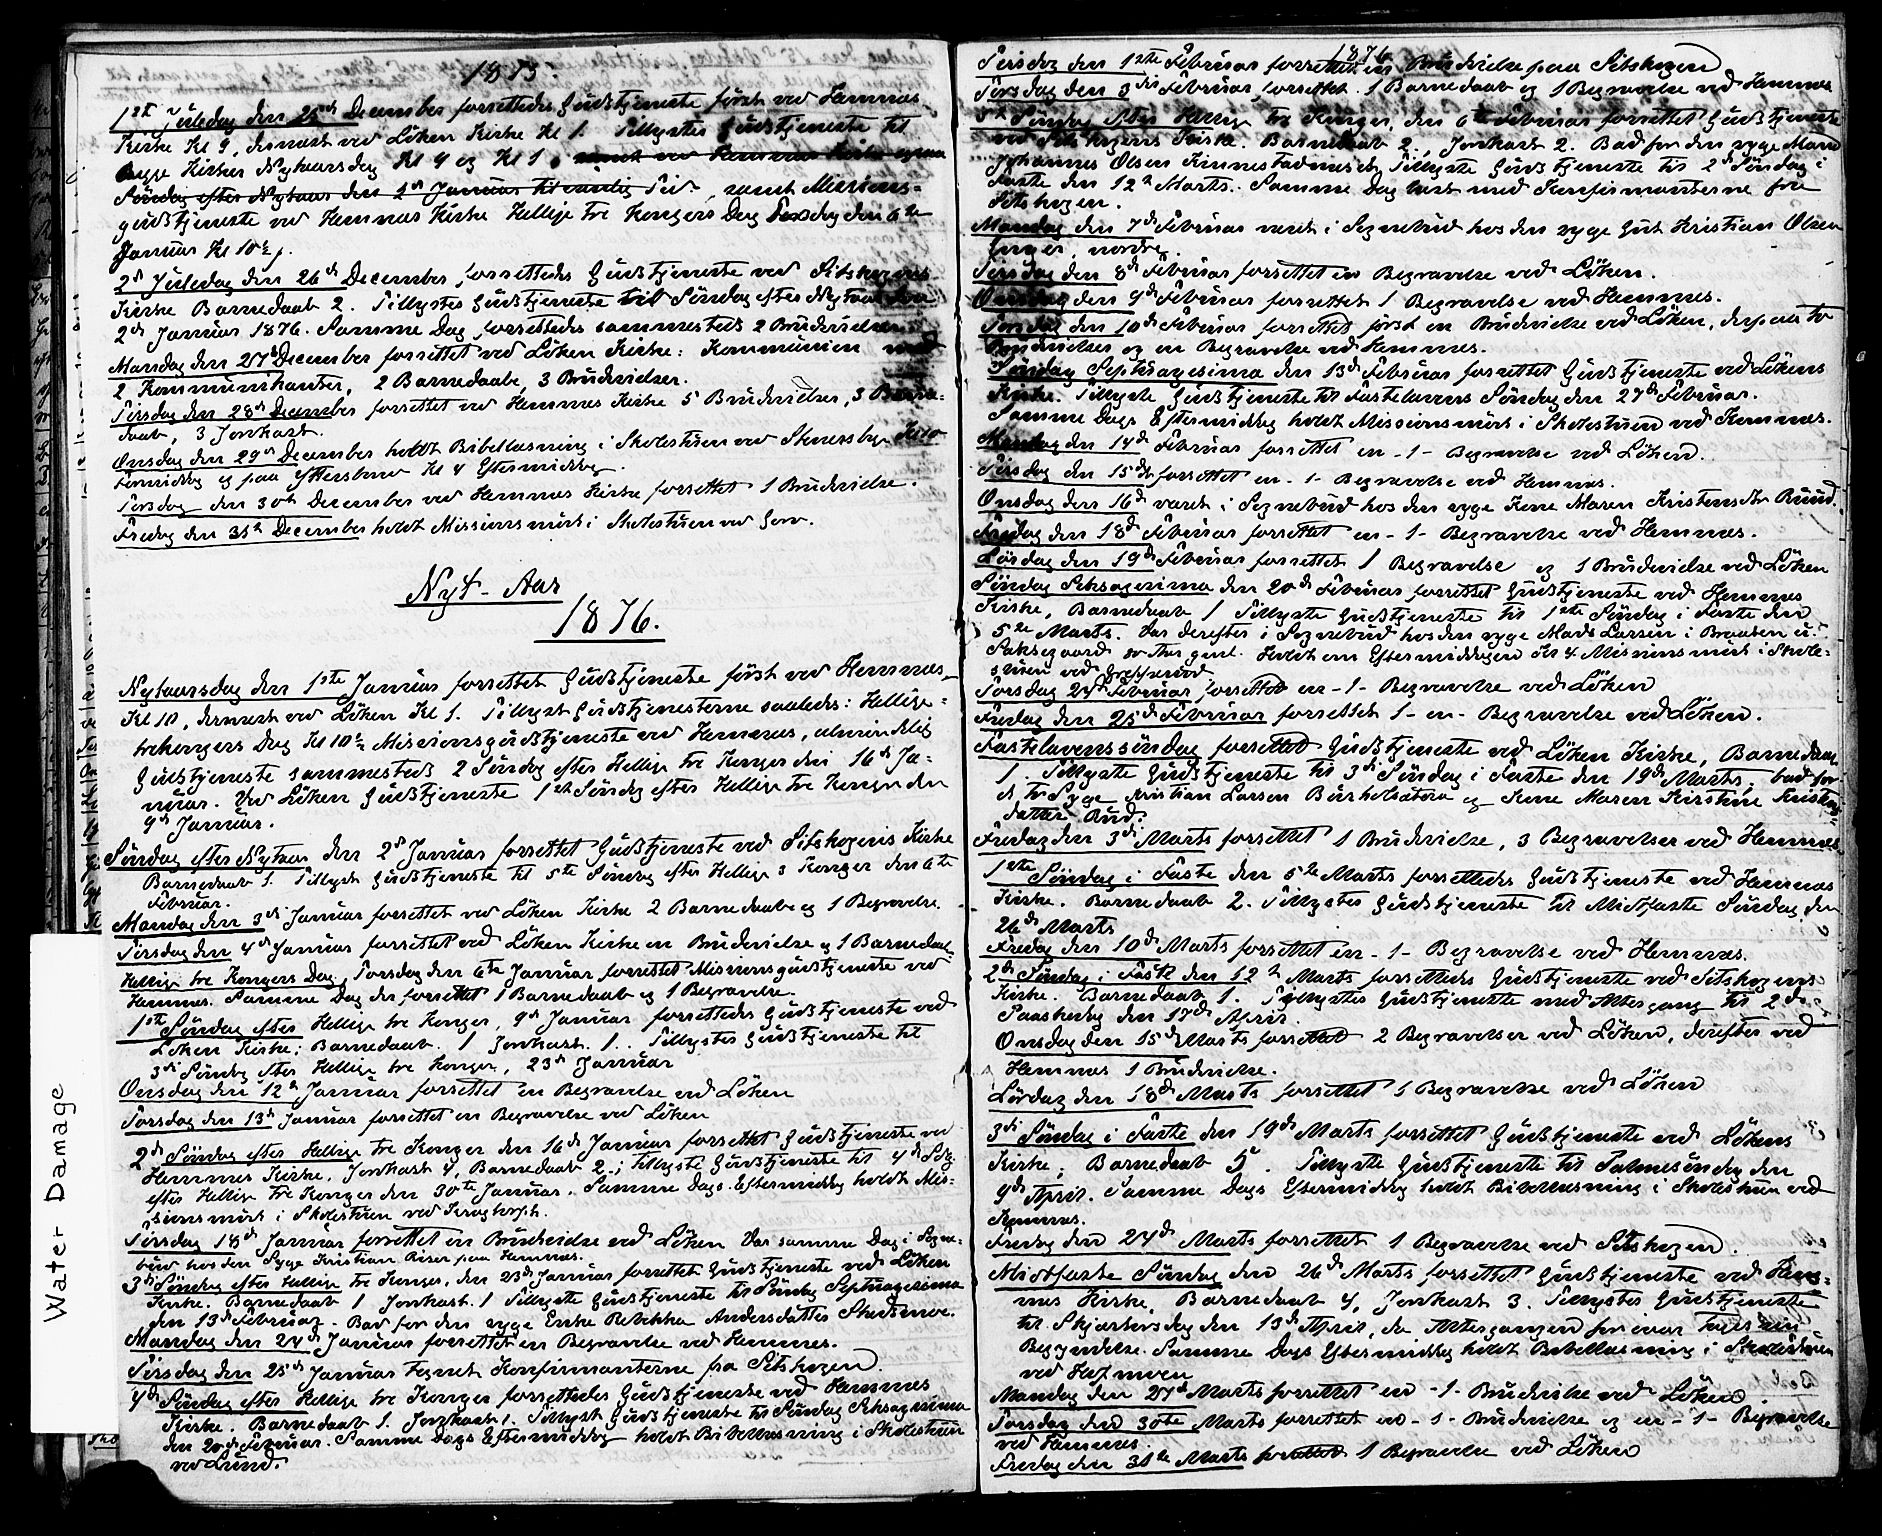 1875.
1st Juledag den 25de December forrettedes Gudstjeneste först ved Hemnæs
Kirke Kl 9, dernæst ved Löken Kirke Kl 1. Tillystes Gudstjeneste til
begge Kirker Nytaarsdag Kl 9 og Kl 1, samt ved Hemnæs Kirke
Söndag efter Nytaar den 2d Januar til vanlig Tid, samt Missions-
gudstjeneste ved Hemnæs Kirke Hellige tre Kongers Dag Torsdag den 6te
Januar Kl 10½.
2d Juledag den 26de December, forrettedes Gudstjeneste ved Sitskogens
Kirke Barnedaab 2. Tillystes Gudstjeneste til Söndag efter Nytaar den
2den Januar 1876. Samme Dag forrettedes sammesteds 2 Brudevielser
Mandag den 27de December forrettet ved Löken Kirke: Kommunion med
2 Kommunikanter, 2 Barnedaabe, 3 Brudevielser.
Tirsdag den 28de December forrettet ved Hemnæs Kirke 5 Brudevielser, 3 Barne-
daab, 3 Jordkast.
Onsdag den 29de December holdt Bibellæsning i Skolestuen ved Stenersby Kl 10
Formiddag og paa Yttersbraa Kl 4 Eftermiddag.
Torsdag den 30te December ved Hemnæs Kirke forrettet 1 Brudevielse.
Fredag den 31te December holdt Missionsmöde i Skolestuen ved
Nyt-Aar
1876.
Nytaarsdag den 1ste Januar forrettet Gudstjeneste först ved Hemnæs
Kl 10, dernæst ved Löken Kl 1. Tillyst Gudstjenesterne saaledes: Hellige-
trekongers Dag Kl 10½ Missionsgudstjeneste ved Hemnæs, almindelig
Gudstjeneste sammesteds 2 Söndag efter Hellige tre Konger den 16de Ja-
nuar. Ved Löken Gudstjeneste 1ste Söndag efter Hellige tre Konger den
9de Januar.
Söndag efter Nytaar den 2d Januar forrettet Gudstjeneste ved Sitskogens Kirke
Barnedaab 1. Tillyst Gudstjeneste til 5te Söndag efter Hellige 3 Konger den 6te
Februar.
Mandag den 3di Januar forrettet ved Löken Kirke 2 Barnedaab og 1 Begravelse.
Tirsdag den 4de Januar forrettet ved Löken Kirke en Brudevielse og 1 Barnedaab
Hellige tre Kongers Dag, Torsdag den 6te Januar, forrettet Missionsgudstjeneste ved
Hemnæs. Samme Dag der forrettet 1 Barnedaab og 1 Begravelse.
1ste Söndag efter Hellige tre Konger, 9de Januar forrettedes Gudstjeneste ved
Löken Kirke; Barnedaab. 1 Jordkast. 1. Tillystes Gudstjeneste til
3di Söndag efter Hellige tre Konger, 23de Januar
Onsdag den 12te Januar forrettet en Begravelse ved Löken
Torsdag den 13de Januar forrettet en Begravelse ved Löken
2den Söndag efter Hellige tre Konger den 16de Januar forrettet Gudstjeneste ved
Hemnæs Kirke. Jordkast 4, Barnedaab 2; tillyste Gudstjeneste til 4de Sön-
efter Hellige tre Konger den 30te Januar. Samme Dags Eftermiddag holdt Mis-
sionsmöde i Skolestuen ved
Tirsdag 18de Januar forrettet en Brudevielse ved Löken Var samme Dag i Sogne-
bud hos den Syge Kristian Riser paa Hemnæs.
3di Söndag efter Hellige tre Konger, den 23de Januar forrettet Gudstjeneste ved Löken
Kirke. Barnedaab 1 Jordkast. 1 Tillyste Gudstjeneste til Söndag Septuagesima
den 13de Februar. Bad for den syge Enke Rebekka Andersdatter
Mandag den 24de Januar forrettet en Begravelse ved Hemnæs.
Tirsdag den 25de Januar Konfirmanterne fra Sitskogen.
4de Söndag efter Hellige tre Konger forrettedes Gudstjeneste ved Hemnæs
Kirke. Barnedaab 1. Jordkast 1. Tillyst Gudstjeneste til Söndag Sexagesima
den 20de Februar. Samme Dags Eftermiddag holdt Bibellæsning i Skolestuen
ved Lund.
1876
Tirsdag den 1ste Februar forrettet en Brudevielse paa Sitskogen
Torsdag den 3die Februar, forrettet 1 Barnedaab og 1 Begravelse ved Hemnæs
5te Söndag efter Hellige tre Konger, den 6te Februar forrettet Gudstjeneste
ved Sitskogens Kirke. Barnedaab 2, Jordkast 2. Bad for den syge Mand
Johannes Olsen Tillyste Gudstjeneste til 2d Söndag i
Faste den 12te Marts. Samme Dag læst med Konfirmanterne fra
Sitskogen.
Mandag den 7de Februar været i Sognebud hos den syge Gut Kristian Olsen
nordre.
Tirsdag den 8de Februar forrettet en Begravelse ved Löken.
Onsdag den 9de Februar forrettet 1 Begravelse ved Hemnæs.
Torsdag den 10de Februar forrettet först en Brudevielse ved Löken, derpaa to
Brudevielser og en Begravelse ved Hemnæs.
Söndag Septuagesima den 13de Februar forrettet Gudstjeneste ved Lökens
Kirke. Tillyste Gudstjeneste til Fastelavens Söndag den 27de Februar.
Samme Dags Eftermiddag holdt Missionsmöde i Skolestuen ved Hemnæs.
Mandag den 14de Februar forrettet en -1- Begravelse ved Löken
Tirsdag den 15de forrettet en -1- Begravelse ved Hemnæs.
Onsdag den 16de været i Sognebud hos den syge Kone Maren Kristensdtr Ruud.
Fredag den 18de Februar forrettet en -1- Begravelse ved Hemnæs.
Lördag den 19de Februar forrettet 1 Begravelse og 1 Brudevielse ved Löken
Söndag Seksagesima den 20de Februar forrettet Gudstjeneste ved Hemnæs
Kirke, Barnedaab 1 Tillyste Gudstjeneste til 1ste Söndag i Faste den
5te Marts. Var derefter i Sognebud hos den syge Mads Larsen i Braaten u.
Aar gml. Holdt om Eftermiddagen Kl 4 Missionsmöde i Skole-
stuen ved
Torsdag 24de Februar forrettet en -1- Begravelse ved Löken
Fredag den 25de Februar forrettet 1 -en- Begravelse ved Löken.
Fastelavenssöndag forrettet Gudstjeneste ved Löken Kirke, Barnedaab
1. Tillyste Gudstjeneste til 3di Söndag i Faste den 19de Marts; bad for
de to Syge Kristian Larsen og Kone Maren Kirstine Kristians-
datter Ruud.
Fredag den 3di Marts forrettet 1 Brudevielse, 3 Begravelser ved Hemnæs
1ste Söndag i Faste den 5te Marts forrettedes Gudstjeneste ved Hemnæs
Kirke. Barnedaab 2. Tillystes Gudstjeneste til Midfaste Söndag den
26de Marts
Fredag den 10de Marts forrettet en -1- Begravelse ved Hemnæs.
2den Söndag i Faste den 12te Marts forrettedes Gudstjeneste ved Sitskogens
Kirke. Barnedaab 1. Tillystes Gudstjeneste med Altergang til 2den
Paaskedag den 17de April.
Onsdag den 15de Marts forrettet 2 Begravelser ved Löken, derefter ved
Hemnæs 1 Brudevielse.
Lördag den 18de Marts forrettet 1 Begravelse ved Löken
3di Söndag i Faste den 19de Marts forrettet Gudstjeneste ved Lökens
Kirke; Barnedaab 5. Tillyste Gudstjeneste til Palmesöndag den
9de April. Samme Dags Eftermiddag holdt Bibellæsning i Skolestuen ved
Hemnæs.
Fredag den 24de Marts forrettet 1 Begravelse ved Sitskogen.
Midfaste Söndag den 26de Marts forrettet Gudstjeneste ved Hem-
næs Kirke, Barnedaab 4, Jordkast 3. Tillystes Gudstjeneste
til Skjærtorsdag den 13de April, da Altergangen for vaar Tager sin
Begyndelse. Samme Dags Eftermiddag holdt Bibellæsning i Skolestuen
ved
Mandag den 27de Marts forrettet en -1- Brudevielse ved Löken
Torsdag den 30te Marts forrettet en -1- Brudevielse og en -1- Begravelse
ved Hemnæs
Fredag den 31te Marts forrettet 1 Begravelse ved Löken
Water Damage